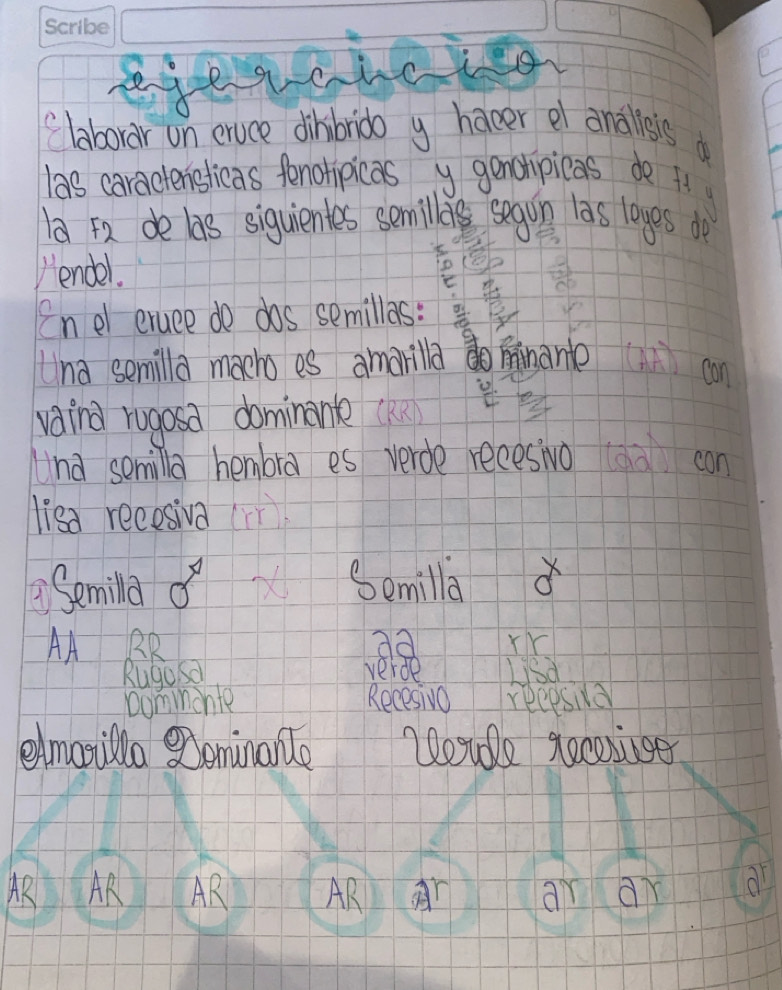 Scribe
ejercicio
Elaborar un cruce dihibrido y hacer el análisis de
las características fenotipicas y genotipicas de F1 y
la F2 de las siguientes semillas según las leyes de
Mendel.
En el cruce de dos semillas:
Una semilla macho es amarilla dominante (AA) con
vaina rugosa dominante (RR)
Una semilla hembra es verde recesivo (aa) con
lisa recesiva (rr).
1 Semilla ♂ X Semilla ♂
AA RR aa rr
Rugosa verde Lisa
Dominante Recesivo recesiva
Amarilla Dominante Verde recesivo
AR AR AR AR ar ar ar ar